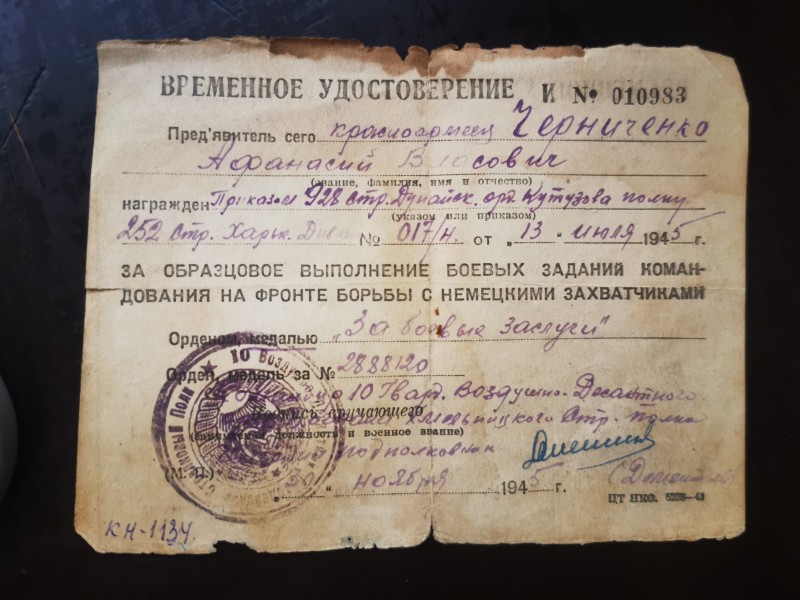 ВРЕМЕННОЕ УДОСТОВЕРЕНИЕ И № 010983
Пред'явитель сего красноармеец Черниченко
Афанасий Власович
(звание, фамилия, имя и отчество)
награжден Приказом 928 Стр. Дунайск. орд. Кутузова полку
(указом или приказом)
252 Стр. Харьк. № 017/н. от „13" июля 1945 г.
ЗА ОБРАЗЦОВОЕ ВЫПОЛНЕНИЕ БОЕВЫХ ЗАДАНИЙ КОМАН-
ДОВАНИЯ НА ФРОНТЕ БОРЬБЫ С НЕМЕЦКИМИ ЗАХВАТЧИКАМИ
Орденом, медалью „За боевые заслуги"
Орден, медаль за № 2888120
10 Гвард. Воздушно-Десантного
Подпись вручающего
Хмельницкого Стр. полка
должность и военное звание)
подполковник
(М. П.) ноября 1945 г.
ЦТ НКО. 5238-43
КН-1134.
10
Стрелковый Полк